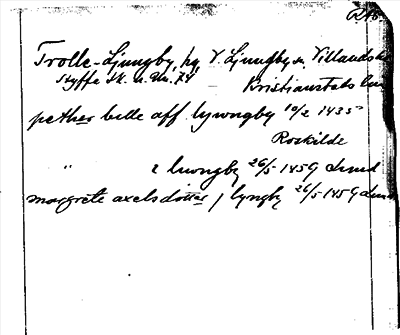 RAP.
Trolle-Ljungby, hg, V. Ljungby s. Villands h
Styffe Sk. u. Un. 74 Kristianstads län
pether bille aff lywngby 10/2 1435
Roskilde
" i liwngby 26/5 1459 Lund
margrete axelsdotter j lyngby 26/5 1459 Lund